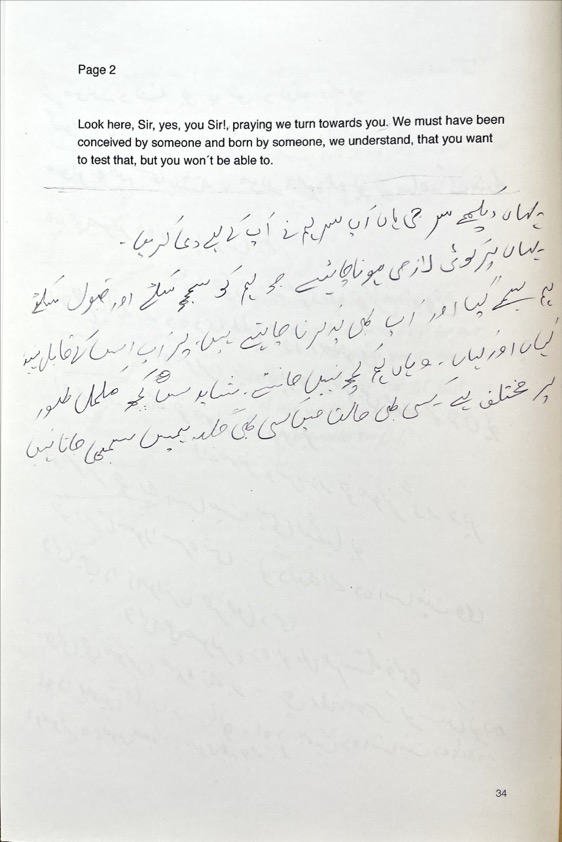 Page 2
Look here, Sir, yes, you Sir!, praying we turn towards you. We must have been
conceived by someone and born by someone, we understand, that you want
to test that, but you won´t be able to.
یہاں دیکھے سر جی ہاں آپ سر ہم نے آپ کے لیے دعا کر
یہاں پر کوئی لازمی ہونا چاہئیے جو ہم کو سمجھ سکے اور قبول سکے
ہم سے کیا اور آپ بھی یہ کرنا چاہتے ہیں، پر آپ اس کے قابل
کہاں اور کہاں ۔ وہاں ہم کچھ نہیں جانتے ۔ شاید سب کچھ مکمل طور
پر مختلف ہے ۔ کسی بھی حالت میں کسی بھی جگہ ہمیں سمجھی جاتا نہیں
34